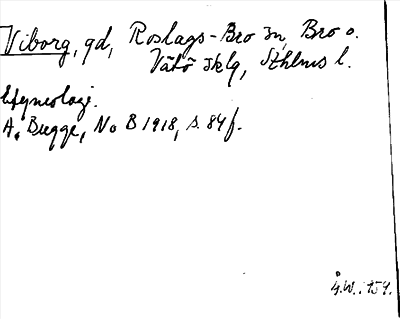 Viborg, gd, Roslags-Bro sn, Bro o.
Vätö skg, Sthlms l.
Etymologi.
A. Bugge, No B 1918, s. 84 f.
Å.W. 1959.